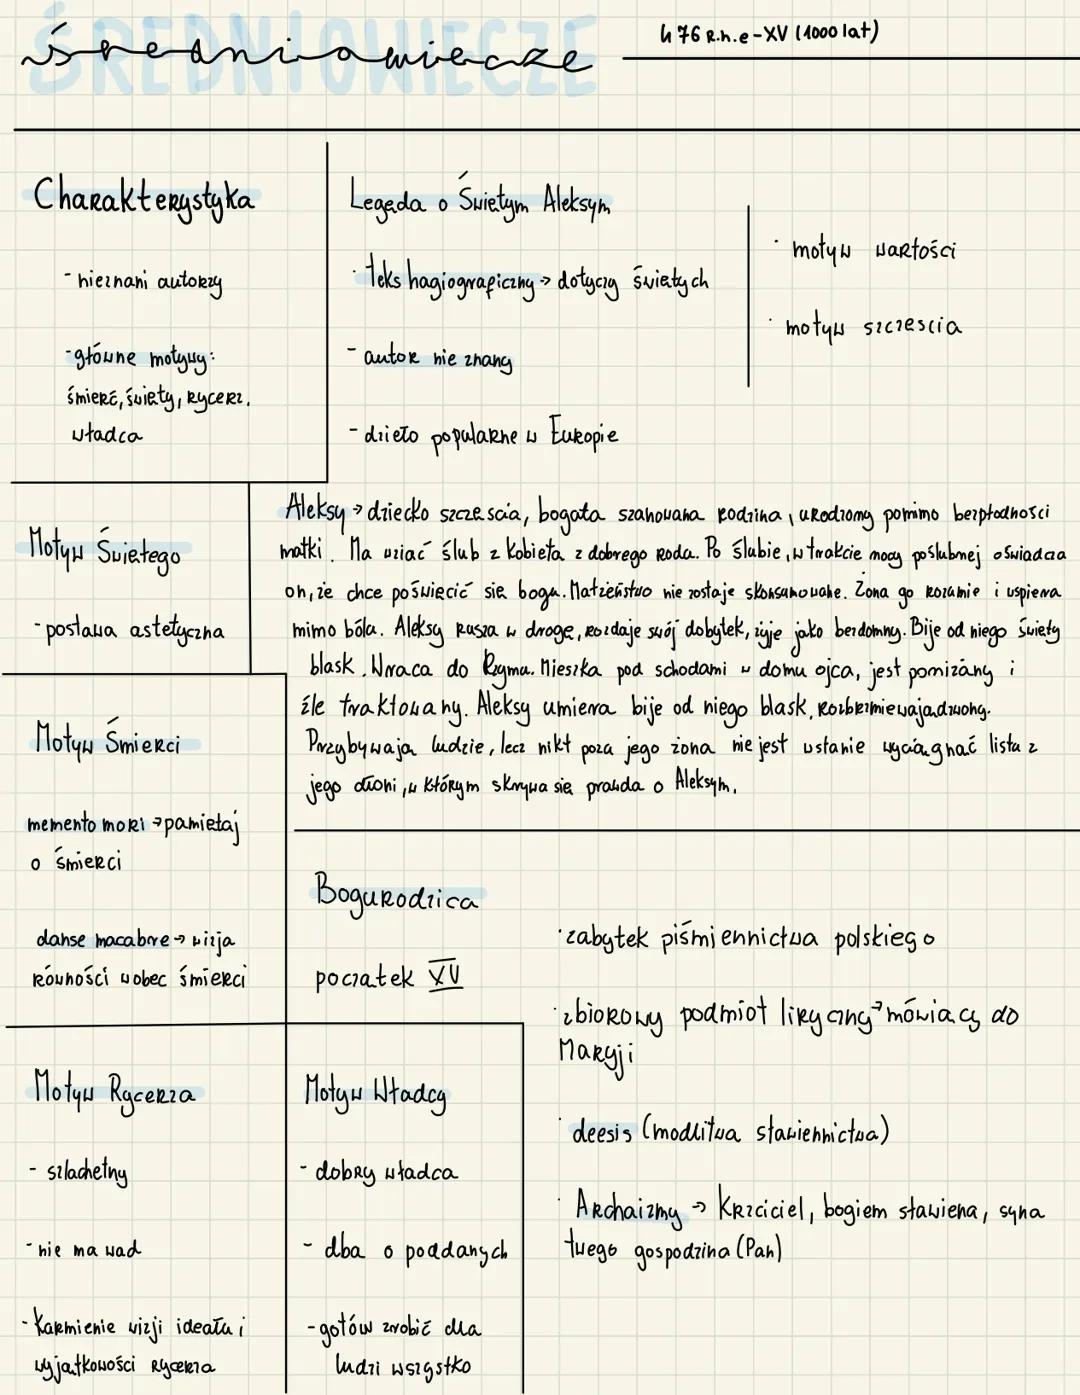 ŚREDNIOWIECZE
średniowiecze
476 R.n.e-XV (1000 lat)
Charakterystyka
- nieznani autorzy
- główne motywy:
śmierć, święty, Rycerz,
władca
Legęda o Świętym Aleksym
· teks hagiograficzny → dotyczy świętych
- autor nie znany
- dzieło popularne w Europie
· motyw wartości
· motyw szczescia
Motyw Świętego
- postawa astetyczna
Aleksy → dziecko szczescia, bogata szanowana rodzina, urodzony pomimo bezpłodności
matki. Ma wziąć ślub z kobieta z dobrego roda. Po ślubie, w trakcie nocy poślubnej oświadcza
on, że chce poświęcić się bogu. Małżeństwo nie zostaje skonsumowane. Żona go rozumie i wspiera
mimo bóla. Aleksy rusza w drogę, rozdaje swój dobytek, żyje jako bezdomny. Bije od niego święty
blask. Wraca do Rzymu. Mieszka pod schodami w domu ojca, jest pomiżany i
źle traktowany. Aleksy umiera bije od niego blask, rozbrzmiewają dzwony.
Przybywają ludzie, lecz nikt poza jego żona nie jest wstanie wyciągnąć listu z
jego dłoni, w którym skrywa się prawda o Aleksym.
Motyw Śmierci
memento mori → pamiętaj
o śmierci
danse macabre → wizja
równości wobec śmierci
Bogurodzica
początek XV
· zabytek piśmiennictwa polskiego
· zbiorowy podmiot liryczny → mówiący do
Maryji
· deesis (modlitwa stawiennictwa)
· Archaizmy → Krzciciel, bogiem sławiena, syna
twego gospodzina (Pan)
Motyw Rycerza
- szlachetny
- nie ma wad
- Karmienie wizji ideału i
wyjątkowości rycerza
Motyw Władcy
- dobry władca
- dba o poddanych
- gotów zrobić dla
ludzi wszystko